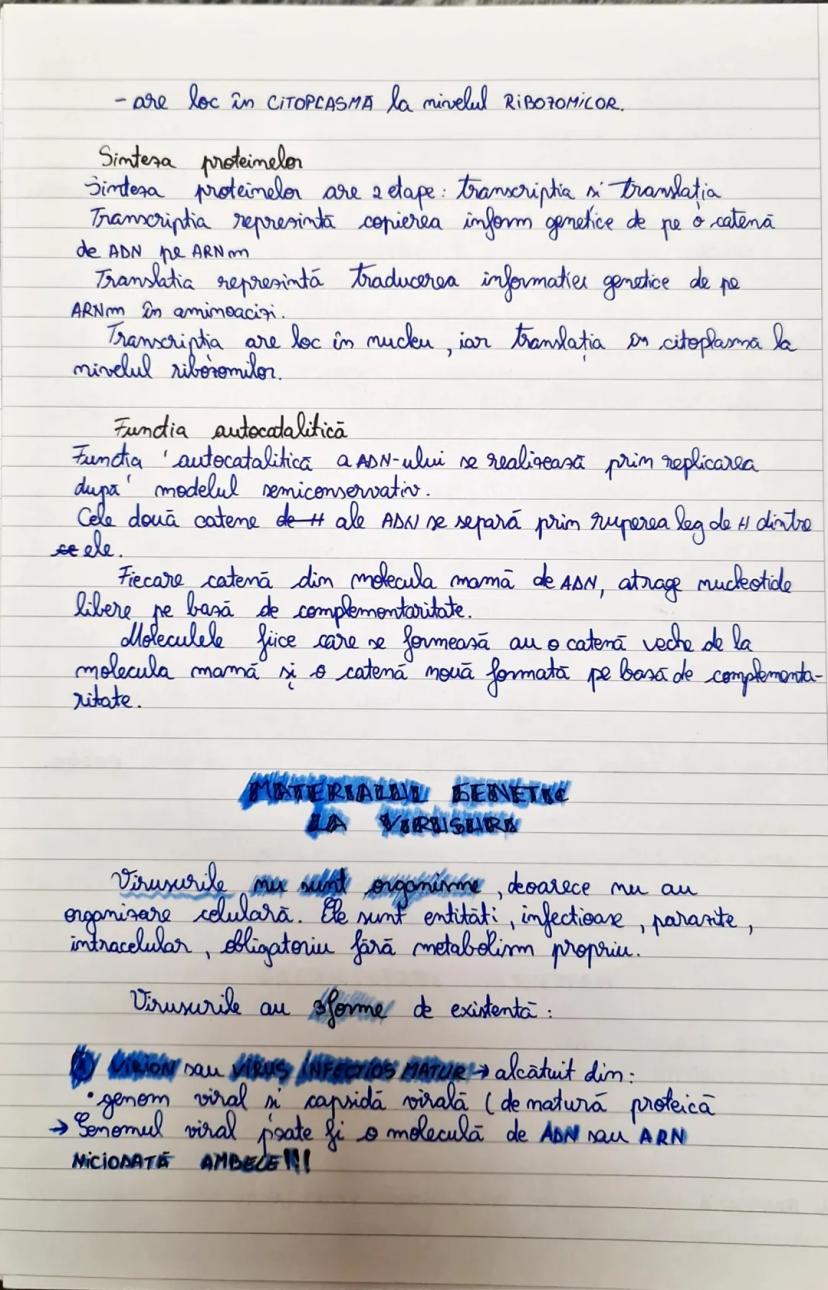 - are loc în CITOPLASMĂ la nivelul RIBOZOMILOR.
Sinteza proteinelor
Sinteza proteinelor are 2 etape: transcriptia si translația
Transcriptia reprezintă copierea inform genetice de pe o catenă
de ADN pe ARNm
Translatia reprezintă traducerea informatiei genetice de pe
ARNm în aminoacizi.
Transcriptia are loc în nucleu, iar translația în citoplasma la
nivelul ribozomilor.
Functia autocatalitică
Functia autocatalitică a ADN-ului se realizează prin replicarea
după modelul semiconservativ.
Cele două catene de H ale ADN se separă prin ruperea leg de H dintre
se ele.
Fiecare catenă din molecula mamă de ADN, atrage nucleotide
libere pe bază de complementaritate.
Moleculele fiice care se formează au o catenă veche de la
molecula mamă și o catenă nouă formată pe bază de complementa-
ritate.
MATERIALUL GENETIC
LA VIRUSURI
Virusurile nu sunt organisme, deoarece nu au
organizare celulară. Ele sunt entităti, infectioase, parazite,
intracelular, obligatoriu fără metabolism propriu.
Virusurile au 3 forme de existentă:
① VIRION sau VIRUS INFECTIOS MATUR → alcătuit din:
• genom viral si capsidă virală (de natură proteică
→ Genomul viral poate fi o moleculă de ADN sau ARN
NICIODATĂ AMBELE!!!